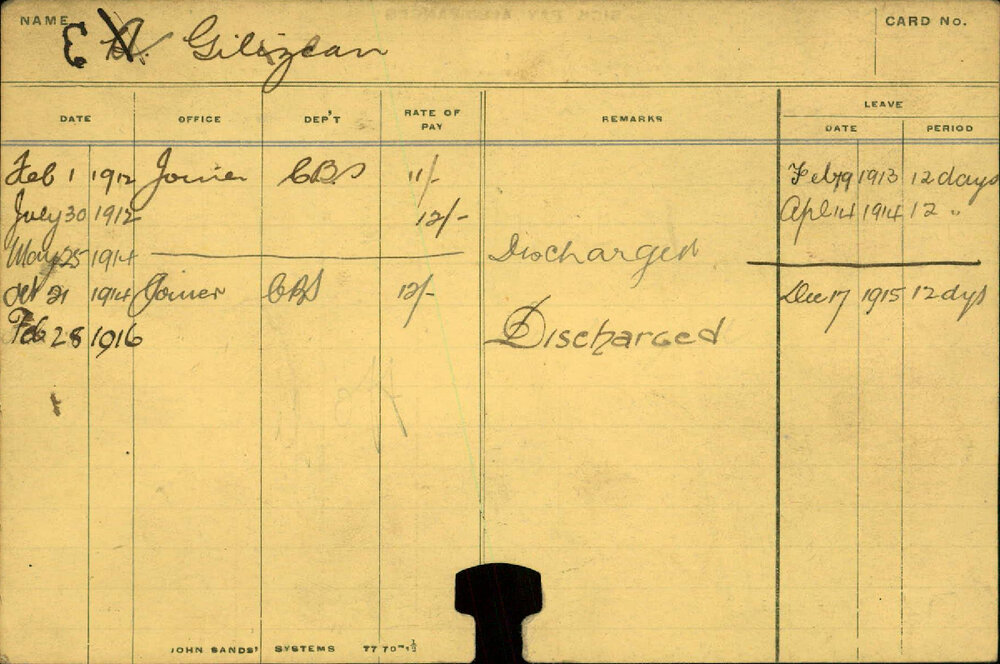 NAME
E Gilizean
CARD No.
DATE OFFICE DEP'T RATE OF PAY REMARKS LEAVE
DATE PERIOD
Feb 1 1912 Joiner CBS 11/- Feb 19 1913 12 days
July 30 1912 12/- Apl 14 1914 12 "
May 25 1914 Discharged
Oct 21 1914 Joiner CBS 12/- Dec 17 1915 12 dys
Feb 28 1916 Discharged
JOHN SANDS' SYSTEMS